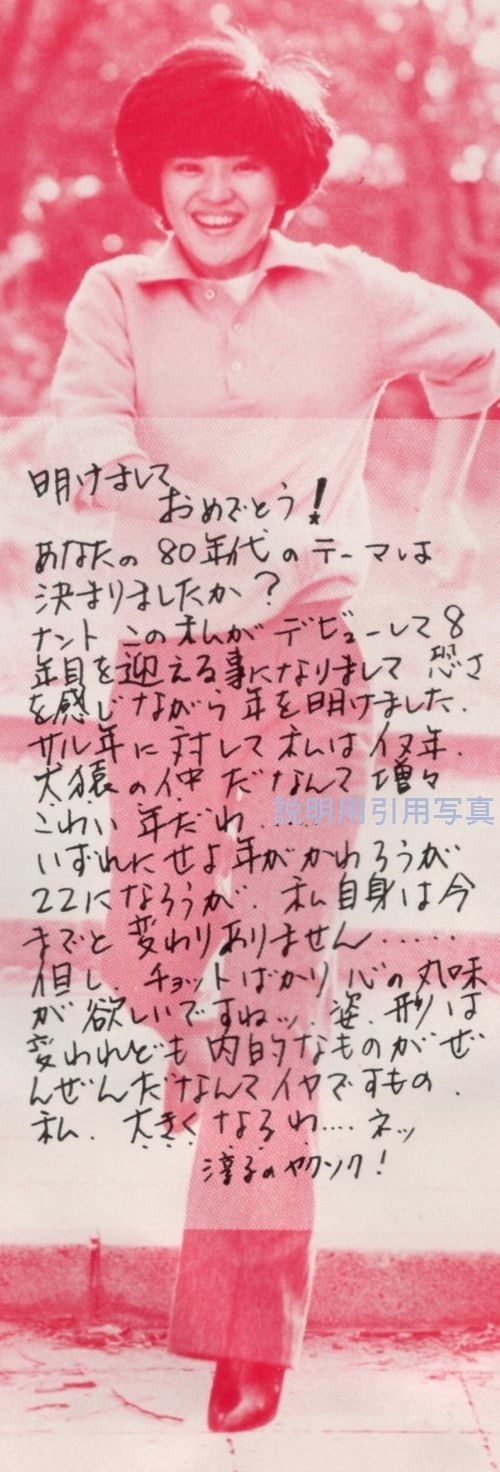 明けまして
おめでとう!
あなたの 80年代 のテーマは
決まりましたか?
ナント この私が デビューして 8
年目を迎える事になりまして 恐さ
を感じながら 年を明けました.
サル年に対して私はイヌ年.
犬猿の仲 だなんて 増々
こわい 年だわ.....
説明用引用写真
いずれにせよ 年が かわろうが
22に なろうが. 私自身は今
までと 変わりありません.....
但し. チョットばかり 心の丸味
が 欲しいですねッ. 姿. 形は
変われども 内的なものが ぜ
んぜんだなんて イヤですもの.
私. 大きく なるわ.... ネッ
淳子のヤクソク!